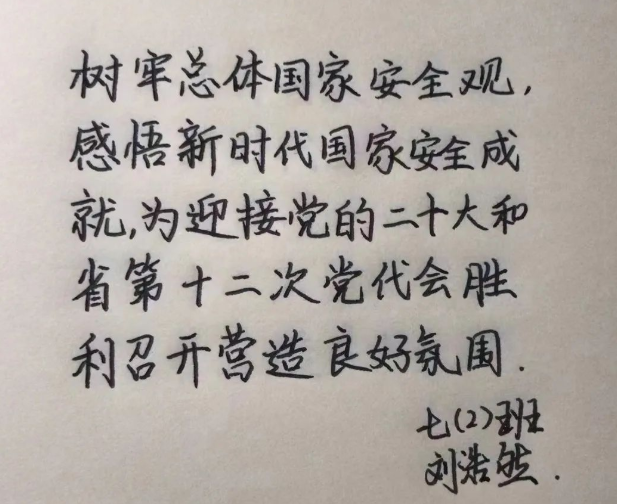 树牢总体国家安全观,
感悟新时代国家安全成
就,为迎接党的二十大和
省第十二次党代会胜
利召开营造良好氛围.
七(2)班
刘浩然.